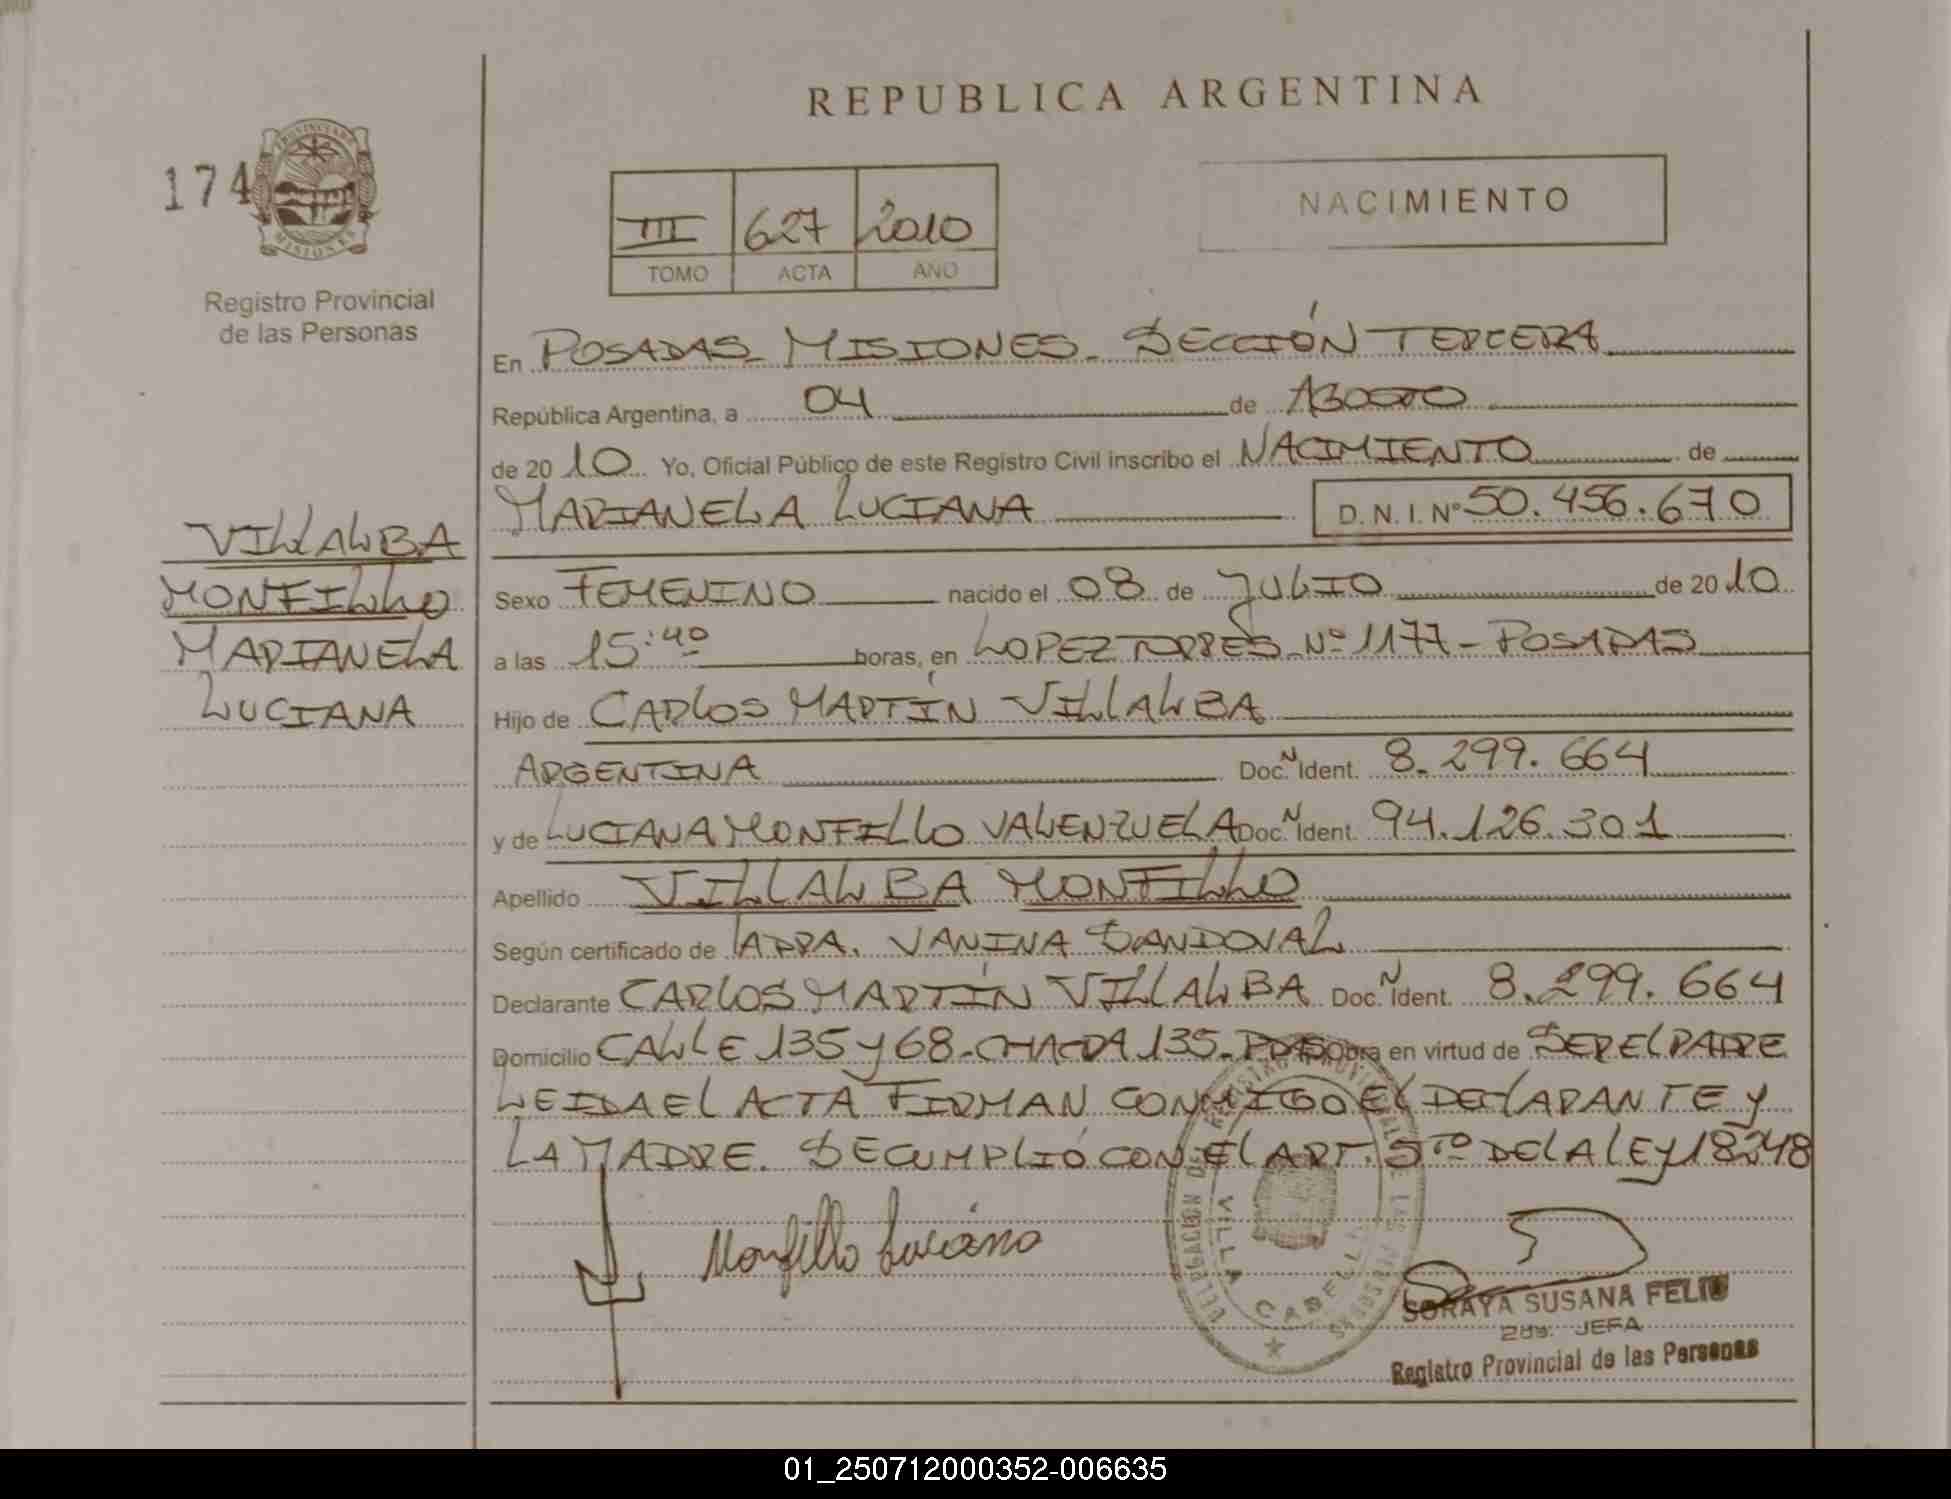 REPUBLICA ARGENTINA
174
PROVINCIA DE MISIONES
Registro Provincial
de las Personas
III 627 2010
TOMO ACTA AÑO
NACIMIENTO
En POSADAS - MISIONES - SECCIÓN TERCERA
República Argentina, a 04 de AGOSTO
de 2010 Yo, Oficial Público de este Registro Civil inscribo el NACIMIENTO de
MARIANELA LUCIANA D.N.I. Nº 50.456.670
VILLALBA
MONFILLO
MARIANELA
LUCIANA
Sexo FEMENINO nacido el 08 de JULIO de 2010
a las 15:40 horas, en LOPEZ TORRES Nº 1177 - POSADAS
Hijo de CARLOS MARTÍN VILLALBA
ARGENTINA Doc. N Ident. 8.299.664
y de LUCIANA MONFILLO VALENZUELA Doc. N Ident. 94.126.301
Apellido VILLALBA MONFILLO
Según certificado de VANINA SANDOVAL
Declarante CARLOS MARTÍN VILLALBA Doc. N Ident. 8.299.664
Domicilio CALLE 135 Y 68 - CHACRA 135 - PDAS Obra en virtud de SER EL PADRE
LEIDA EL ACTA FIRMAN CONMIGO EL DECLARANTE Y
LA MADRE. SE CUMPLIÓ CON EL ART. 5TO DE LA LEY 18248
Monfillo Luciana
DELEGACION DEL REGISTRO PROVINCIAL DE LAS PERSONAS
VILLA CABELLO
SORAYA SUSANA FELIU
2da. JEFA
Registro Provincial de las Personas
01_250712000352-006635